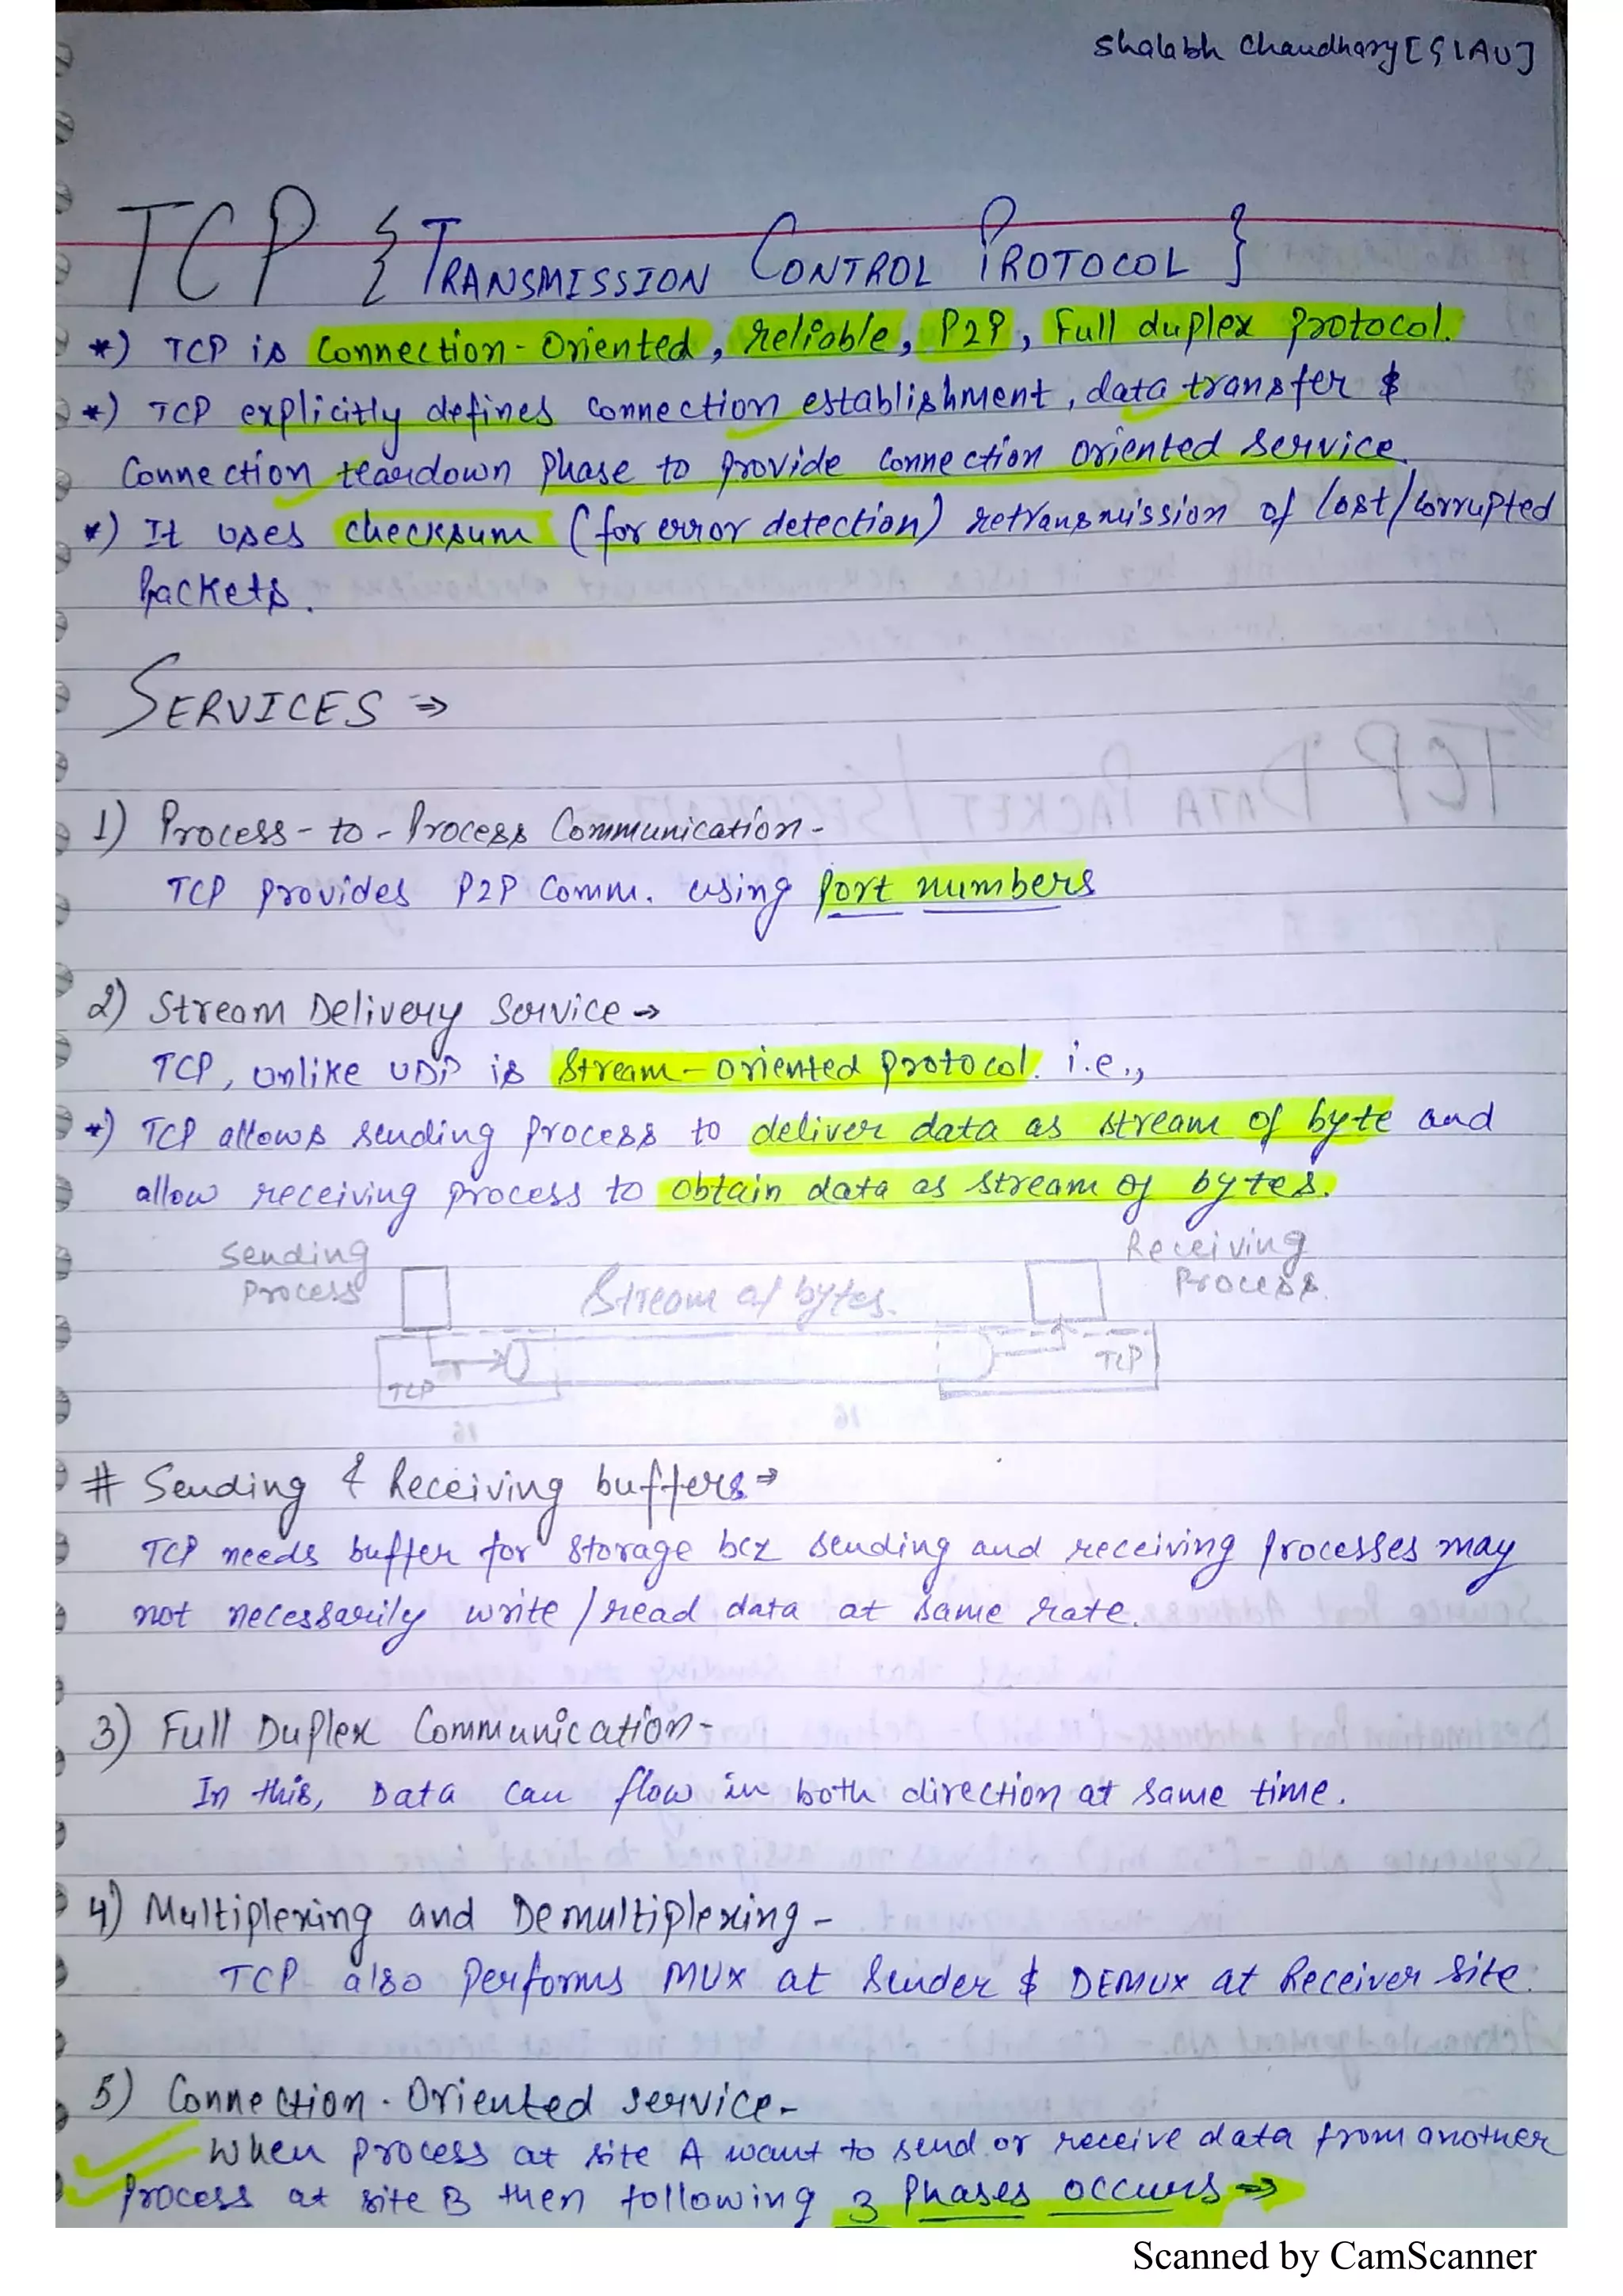 Shalabh Chaudhary [GLAU]
TCP { TRANSMISSION CONTROL PROTOCOL }
*) TCP is Connection-Oriented, reliable, P2P, Full duplex Protocol.
*) TCP explicitly defines connection establishment, data transfer &
Connection teardown phase to provide connection oriented service.
*) It uses checksum (for error detection) retransmission of lost/corrupted
Packets.
SERVICES ⇒
1) Process-to-Process Communication-
TCP provides P2P Comm. using port numbers
2) Stream Delivery Service →
TCP, unlike UDP is stream-oriented protocol. i.e.,
*) TCP allows sending process to deliver data as stream of byte and
allow receiving process to obtain data as stream of bytes.
Sending
Process
Stream of bytes.
Receiving
Process.
TCP
TCP
# Sending & Receiving buffers ⇒
TCP needs buffer for storage bcz sending and receiving processes may
not necessarily write / read data at same rate.
3) Full Duplex Communication-
In this, Data can flow in both direction at same time.
4) Multiplexing and Demultiplexing -
TCP also performs MUX at sender & DEMUX at Receiver site.
5) Connection-Oriented service-
When process at site A want to send or receive data from another
Process at site B then following 3 Phases occurs ⇒
Scanned by CamScanner